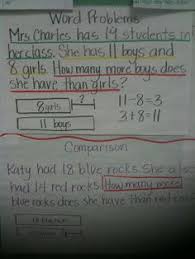 Word Problems
Mrs. Charles has 19 students in
her class. She has 11 boys and
8 girls. How many more boys does
she have than girls?
8 girls ?
11 boys
11-8=3
3+8=11
Comparison
Katy had 18 blue rocks. She a
had 14 red rocks. How many more
blue rocks does she have than red